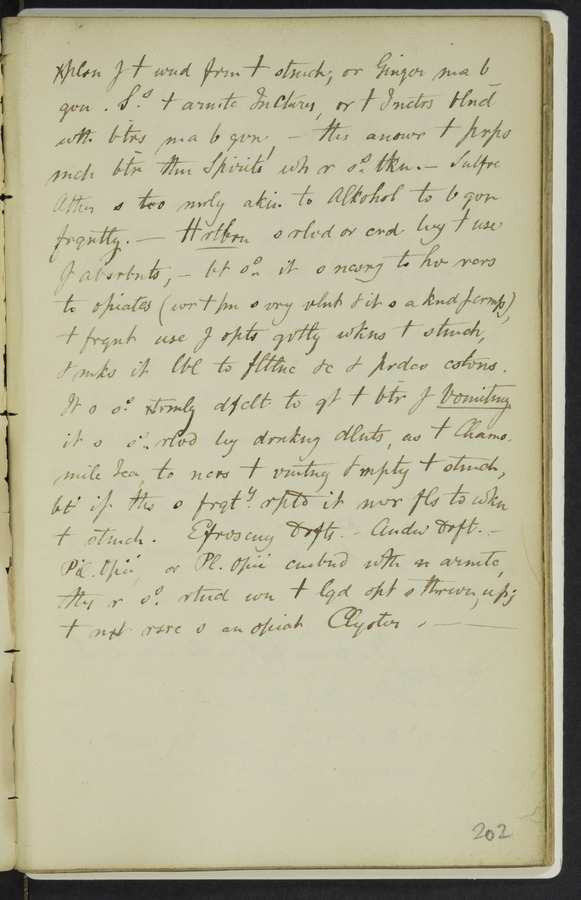 xplsn f t wnd frm t stmch; or Ginger ma b
gvn. S.o t armtc Tnctures, or t Tnctrs blnd
wth btrs ma b gvn, – this answr t prps
mch btr thn Spirits wh r s.o tkn. – Sulfrc
Ather s too nrly akin to Alkohol to b gvn
frqntly. — Hrtbrn s rlvd or crd by t use
f absrbnts, – bt s.o it s ncsry to hv rcrs
to opiates (wr t pn s vry vlnt & it s a knd f crmp),
t frqnt use f opts grtly wkns t stmch,
& mks it lbl to fltlnc &c & prdcs cstvns.
It s s.o xtrmly dfclt to gt t btr f Vomiting
it s s.o rlvd by drnkng dlnts, as t Chamo-
mile Tea, to ncrs t vmtng & mpty t stmch,
bt if this s frqt.y rptd it nvr fls to wkn
t stmch. Efrvscng Drfts. – Andn Drft. –
Pil. Opii, or Pl. Opii cmbnd wth n armtc,
they r s.o rtnd wn t lqd opt s thrwn up;
t nxt rsrc s an opiat Clyster. —
202